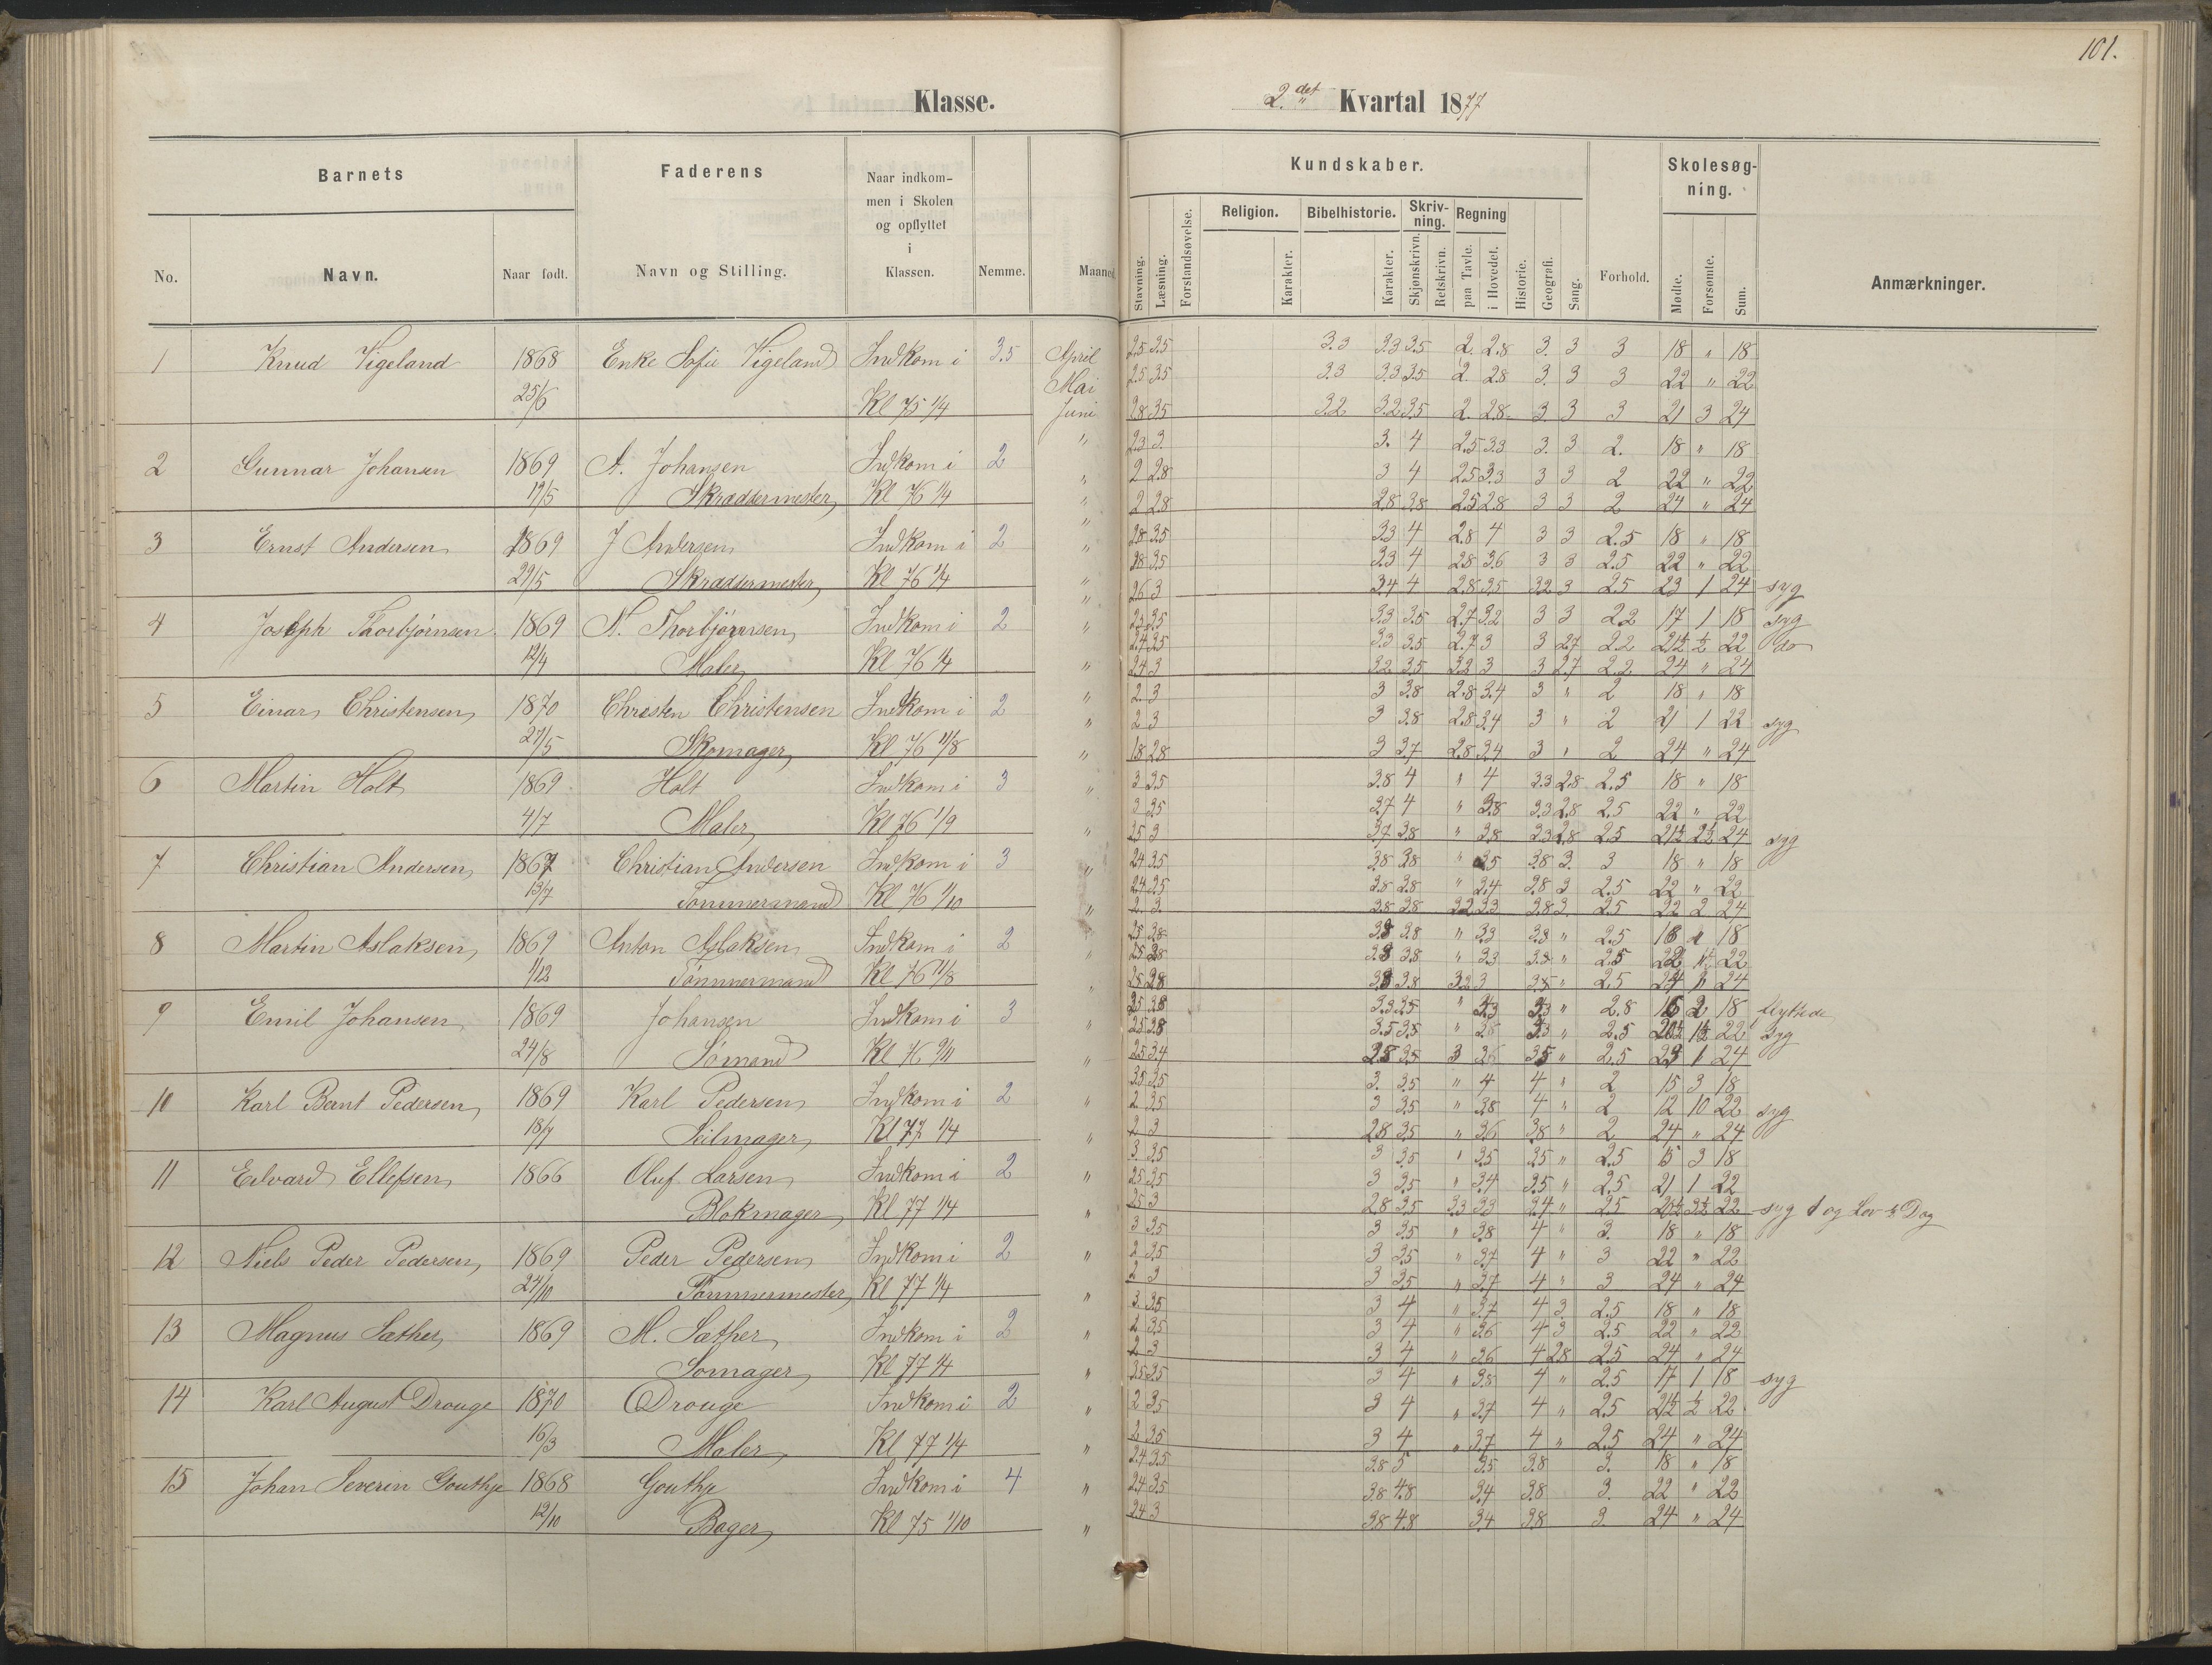 101.
Klasse.
2.det Kvartal 1877
Barnets
Faderens
Naar indkom-
men i Skolen
og opflyttet
i
Klassen.
No.
Navn.
Naar født.
Navn og Stilling.
Nemme.
Maaned
Kundskaber.
Skolesøg-
ning.
Religion.
Bibelhistorie.
Skriv-
ning.
Regning
Stavning.
Læsning.
Forstandsøvelse.
Karakter.
Karakter.
Skjønskrivn.
Retskrivn.
paa Tavle.
i Hovedet.
Historie.
Geografi.
Sang.
Forhold.
Mødte.
Forsømte.
Sum.
Anmærkninger.
1 Knud Vigeland 1868 Enke Sofie Vigeland Indkom i 3.5 April 2.5 3.5 3.3 3.3 3.5 2. 2.8 3. 3 3 18 " 18
25/6 Kl 75 1/4 Mai 2.5 3.5 3.3 3.3 3.5 2. 2.8 3. 3 3 22 " 22
Juni 2.8 3.5 3.2 3.2 3.5 2. 2.8 3 3 3 21 3 24
2 Gunnar Johansen 1869 A. Johansen Indkom i 2 " 2.3 3. 3. 4 2.5 3.3 3. 3 2. 18 " 18
19/5 Skræddermester Kl 76 1/4 " 2 2.8 3 4 2.5 3.3 3 3 2 22 " 22
" 2 2.8 2.8 3.8 2.5 2.8 3 3 2 24 " 24
3 Ernst Andersen 1869 J Andersen Indkom i 2 " 2.8 3.5 3.3 4 2.8 4 3 3 2.5 18 " 18
29/5 Skræddermester Kl 76 1/4 " 2.8 3.5 3.3 4 2.8 3.6 3 3 2.5 22 " 22
" 2.6 3 3.4 4 2.8 3.5 3.2 3 2.5 23 1 24 syg
4 Joseph Thorbjørnsen 1869 N. Thorbjørnsen Indkom i 2 " 2.3 3.5 3.3 3.5 2.7 3.2 3 3 2.2 17 1 18 syg
12/4 Maler Kl 76 1/4 2.4 3.5 3.3 3.5 2.7 3 3 2.7 2.2 21½ ½ 22 do
" 2.4 3 3.2 3.5 3.2 3 3 2.7 2.2 24 " 24
5 Einar Christensen 1870 Christen Christensen Indkom i 2 " 2 3 3 3.8 2.8 3.4 3 " 2 18 " 18
27/5 Skomager Kl 76 11/8 " 2 3 3 3.8 2.8 3.4 3 " 2 21 1 22 syg
" 1.8 2.8 3 3.7 2.8 3.4 3 " 2 24 " 24
6 Martin Holt 1869 Holt Indkom i 3 " 3 3.5 3.8 4 " 4 3.3 2.8 2.5 18 " 18
4/7 Maler Kl 76 1/9 3 3.5 3.7 4 " 3.8 3.3 2.8 2.5 22 " 22
" 2.5 3 3.7 3.8 " 3.8 3.3 2.8 2.5 21½ 2½ 24 syg
7 Christian Andersen 1867 Christian Andersen Indkom i 3 " 2.4 3.5 3.8 3.8 " 3.5 3.8 3. 3 18 " 18
13/7 Tømmermand Kl 76 1/10 2.4 3.5 3.8 3.8 " 3.4 3.8 3 2.5 22 " 22
" 2. 3. 3.8 3.8 3.2 3.3 3.8 3. 2.5 22 2 24
8 Martin Aslaksen 1869 Anton Aslaksen Indkom i 2 " 2.5 3.8 3.8 3.8 " 3.3 3.8 " 2.5 18 18
1/12 Tømmermand Kl 76 11/8 " 2.5 3.8 3.8 3.8 " 3.3 3.8 " 2.5 22 22
" 2.8 2.8 3.8 3.8 3.2 3 3.8 " 2.5 24 24
9 Emil Johansen 1869 Johansen Indkom i 3 3.5 3.8 3.3 3.5 " 3.3 " 2.8 16 2 18 flyttede
24/8 Sømand Kl 76 9/11 " 2.5 3.8 3.5 3.5 " 3.8 " 2.5 20½ 1½ 22 syg
" 2.5 3.4 2.8 3.5 3 3.6 3.5 " 2.5 23 1 24
10 Karl Bernt Pedersen 1869 Karl Pedersen Indkom i 2 3.5 3.5 3. 3.5 " 4 4 " 2 15 3 18
18/7 Seilmager Kl 77 1/4 " 2 3.5 3 3.5 " 3.8 4 " 2 12 10 22 syg
" 2 3 2.8 3.5 " 3.6 3.8 " 2 24 " 24
11 Edvard Ellefsen 1866 Oluf Larsen Indkom i 2 3. 3.5 3 3.5 " 3.5 3.5 " 2.5 15 3 18
Blokmager Kl 77 1/4 " 2.5 3.5 3 3.5 " 3.4 3.5 " 2.5 21 1 22
" 2.5 3 2.8 3.5 3.3 3.3 3.4 " 2.5 20½ 3½ 22 syg 1 og Lov ½ Dag
12 Niels Peder Pedersen 1869 Peder Pedersen Indkom i 2 3 3.5 3 3.5 " 3.8 4 " 3. 18 " 18
24/10 Tømmermester Kl 77 1/4 " 2 3.5 3 3.5 " 3.7 4 " 3 22 " 22
" 2 3 3 3.5 " 3.7 4 " 3 24 " 24
13 Magnus Sæther 1869 M. Sæther Indkom i 2 3. 3.5 3 4 " 3.7 4 3 2.5 18 " 18
Somager Kl 77 1/4 " 2 3.5 3 4 " 3.6 4 3 2.5 22 " 22
" 2 3 3 4 " 3.6 4 2.8 2.5 24 " 24
14 Karl August Drouge 1870 Drouge Indkom i 2 " 3.5 3.5 3 4 " 3.8 4 " 2.5 17 1 18 syg
16/3 Maler Kl 77 1/4 " 2 3.5 3 4 " 3.7 4 " 2.5 21½ ½ 22
" 2 3.5 3 4 " 3.7 4 " 2.5 24 " 24
15 Johan Severin Gouthje 1868 Gouthje Indkom i 4 2.4 3.5 3.8 5 3.5 3.8 3. 18 " 18
12/10 Bager Kl 75 1/10 " 2.4 3.5 3.8 4.8 3.4 3.8 3. 22 " 22
" 2.4 3 3.8 4.8 3.4 3.8 3 24 " 24